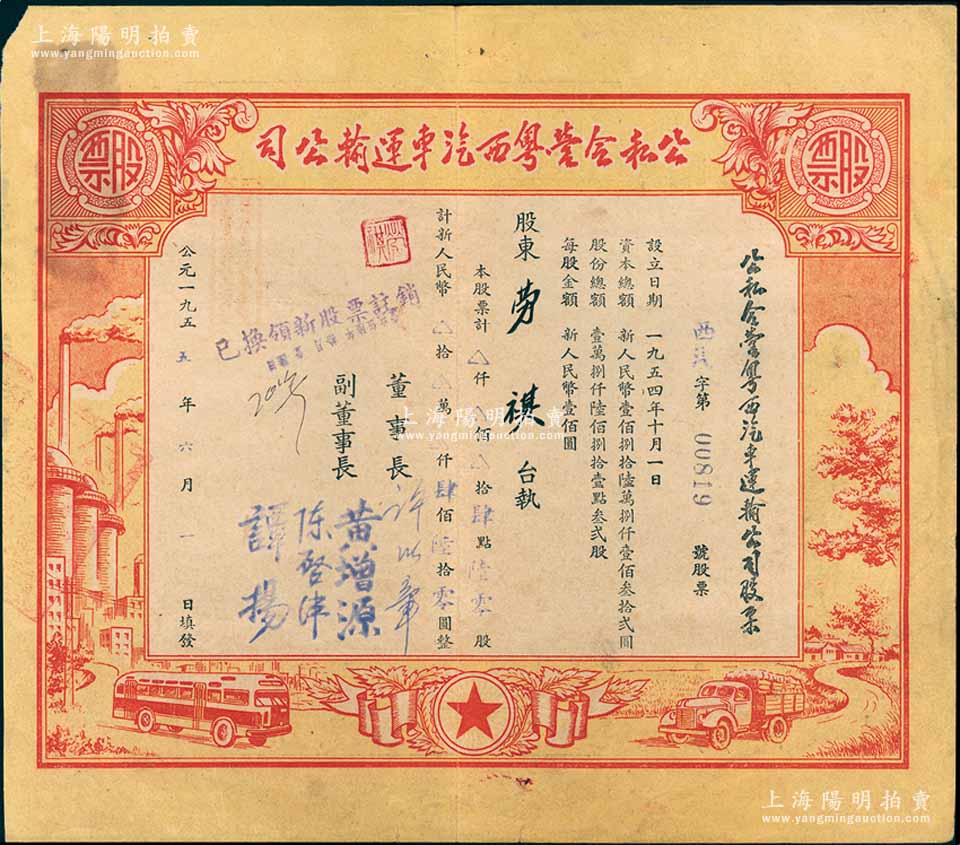 上海陽明拍賣
www.yangmingauction.com
上海陽明拍賣
www.yangmingauction.com
股票
股票
公私合营粤西汽車运輸公司
公私合营粤西汽車运輸公司股票
字第 00819 號股票
設立日期 一九五四年十月一日
資本總額 新人民幣壹佰捌拾陸萬捌仟壹佰叁拾弍圓
股份總額 壹萬捌仟陸佰捌拾壹點叁弍股
每股金額 新人民幣壹佰圓
股東 勞 祺 台執
本股票計 △仟△佰△拾肆點陸零股
計新人民幣 △拾△萬△仟肆佰陸拾零圓整
董事長 許
副董事長 黄增源
陈啓津
譚揚
已換領新股票註銷
公元一九五五年六月一日填發
上海陽明拍賣
www.yangmingauction.com
上海陽明拍賣
www.yangmingauction.com